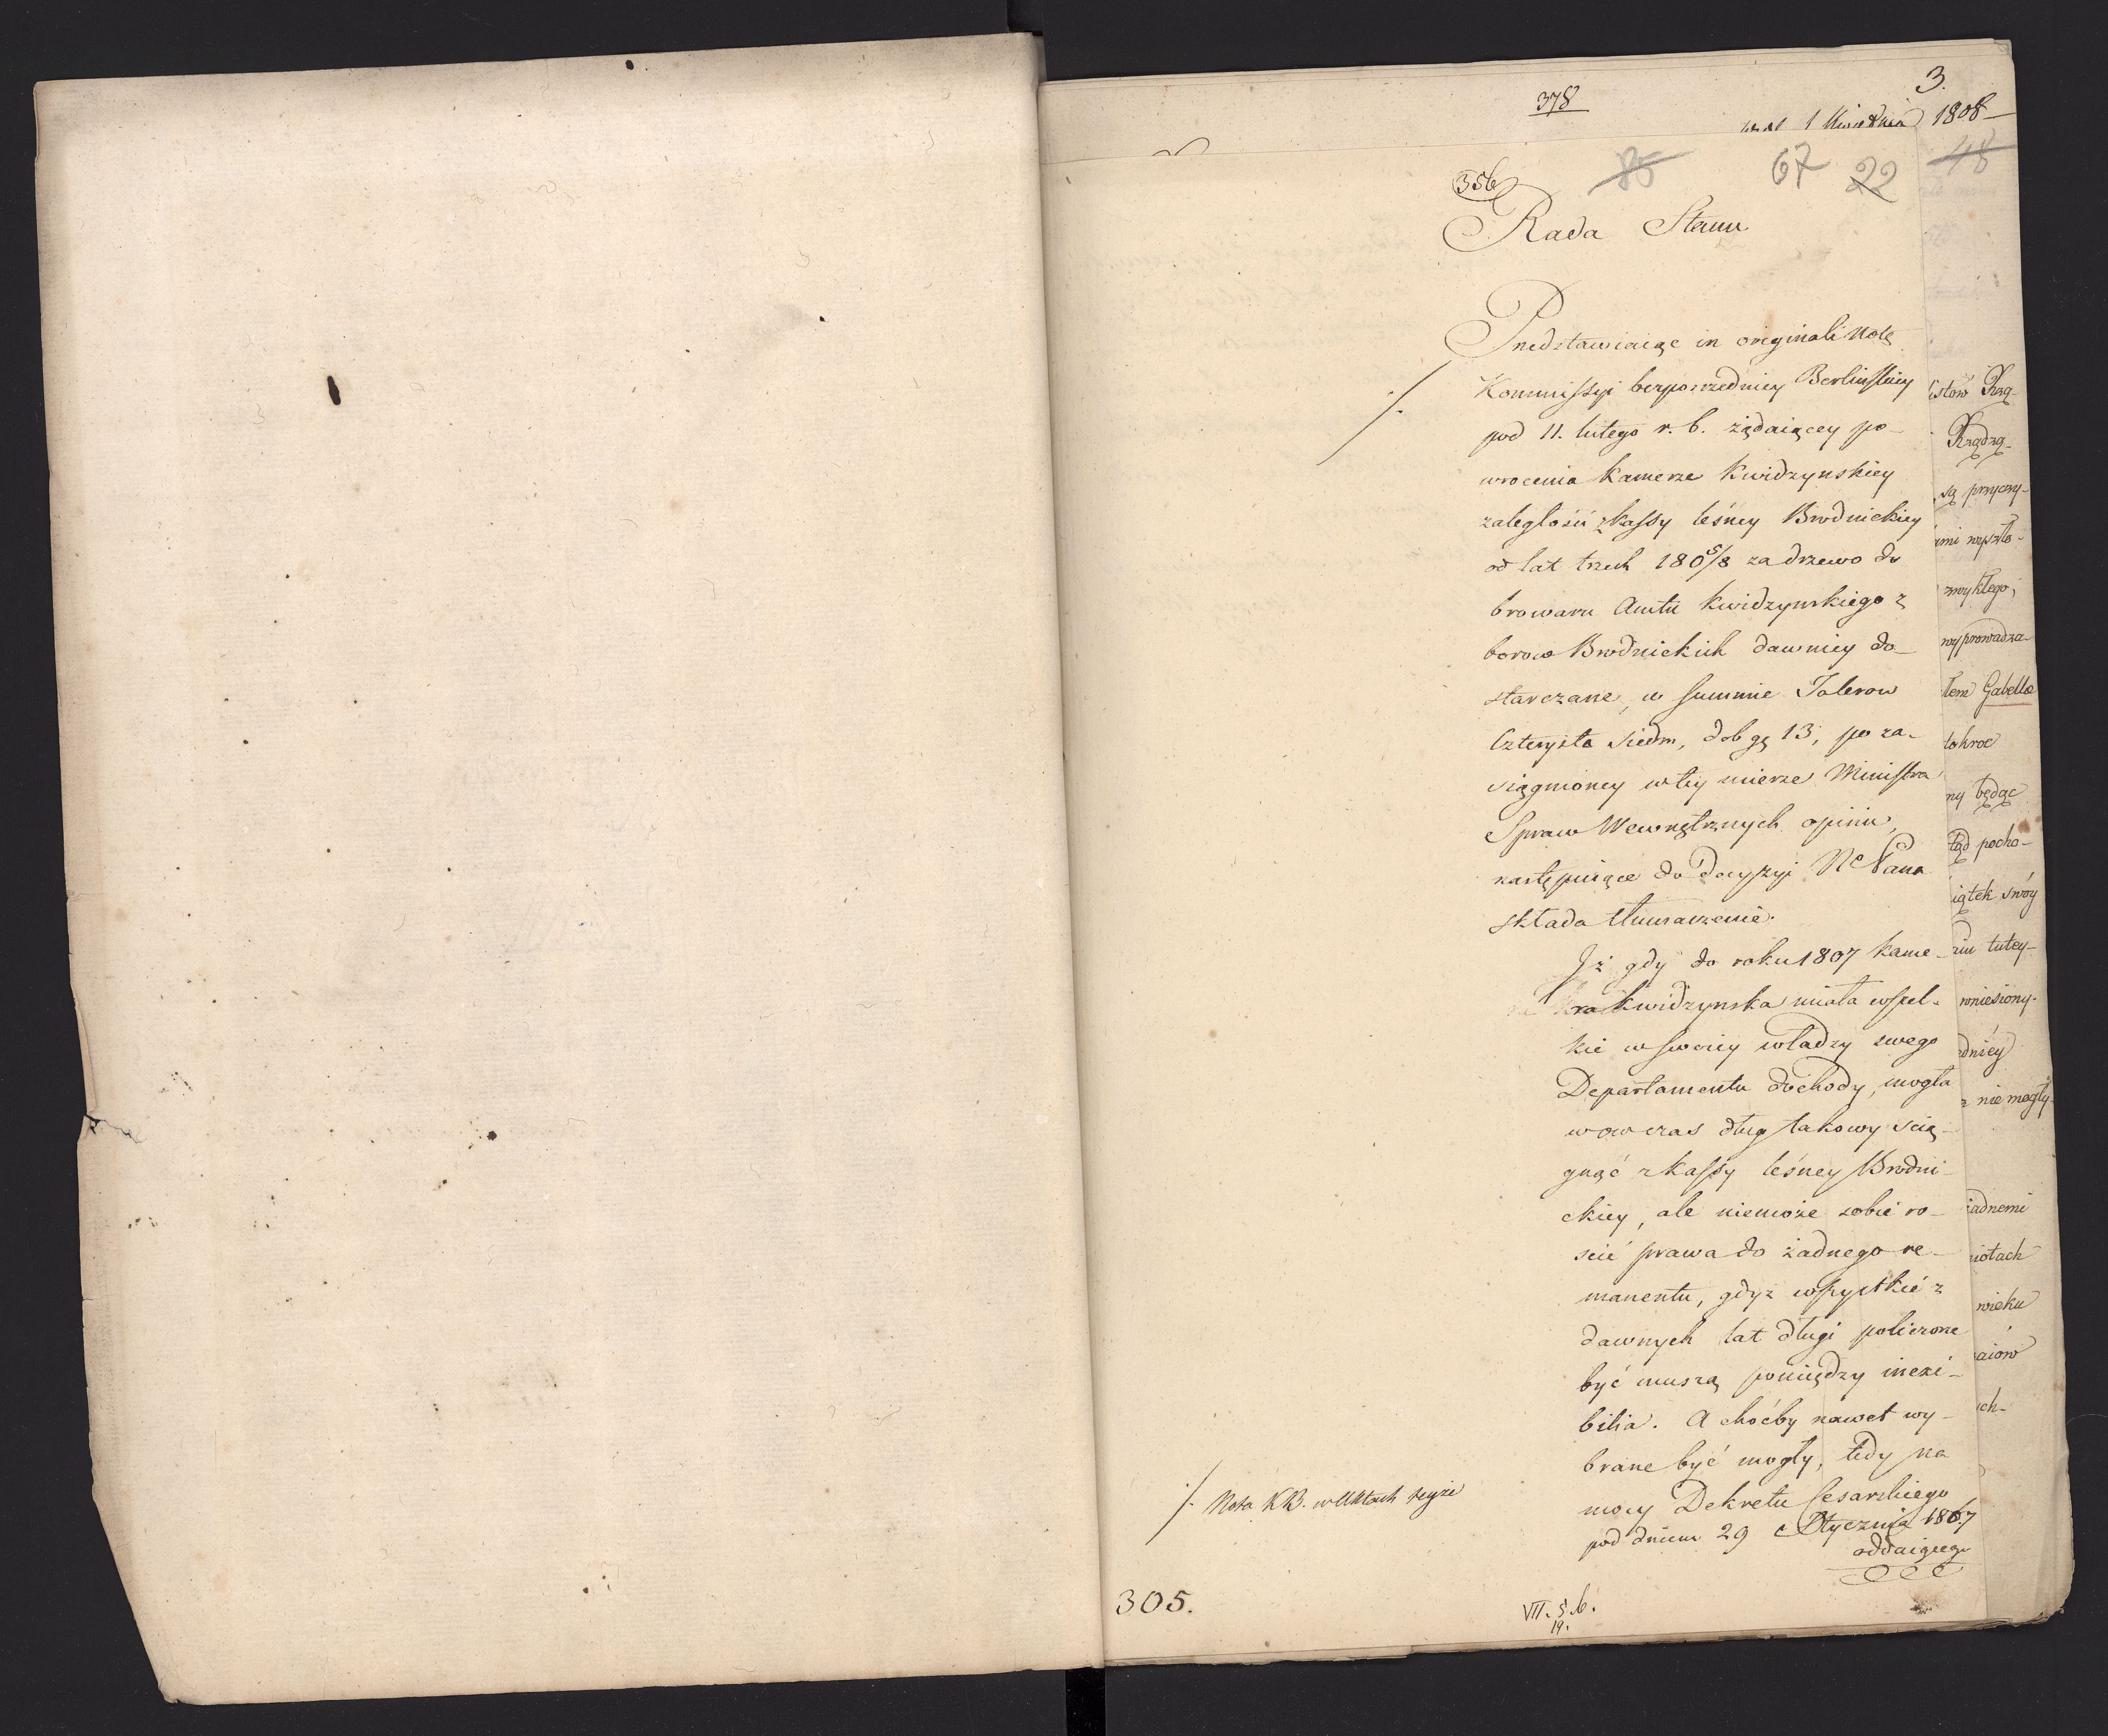 378
3.
1 Kwietnia 1808
356
85 67 22 48
Rada Stanu
Przedstawiaiąc in originali Notę
Kommissyi bezpośredniey Berlinskiey
pod 11. lutego r. b. żądaiącey po-
wrocenia Kamerze Kwidzynskiey
zaległości z kassy leśney Brodnickiey
od lat trzech 180 5/8 za drzewo do
browaru Amtu Kwidzynskiego z
borow Brodnickich dawniey do-
starczane, w summie Talerow
Czterysta siedm, dobgr 13, po za-
siągnioney w tey mierze Ministra
Spraw Wewnętrznych opinii,
następuiące do decyzyi NC Pana
składa tłumaczenie.
Iż gdy do roku 1807 kame-
ra Kwidzynska miała wszel-
kie w swoiey władzy swego
Departamentu dochody, mogła
wowczas dług takowy ścią-
gnąć z kassy leśney Brodni-
ckiey, ale niemoże sobie ro-
ścić prawa do żadnego re-
manentu, gdyż wszystkie z
dawnych lat długi policzone
być muszą pomiędzy inexi-
bilia. A choćby nawet wy-
brane być mogły, tedy na
mocy Dekretu Cesarskiego
pod dniem 29 Stycznia 1807
oddaiącego
/. Nota KB. w Aktach teyże
305.
VII. 5. b.
19.
Rzą-
Rządzą-
są przyczy-
zwykłego;
wyprowadza-
Gabellæ
tokroc
będąc
pocho-
swóy
tutey-
wniesiony-
nie mogły-
wieku